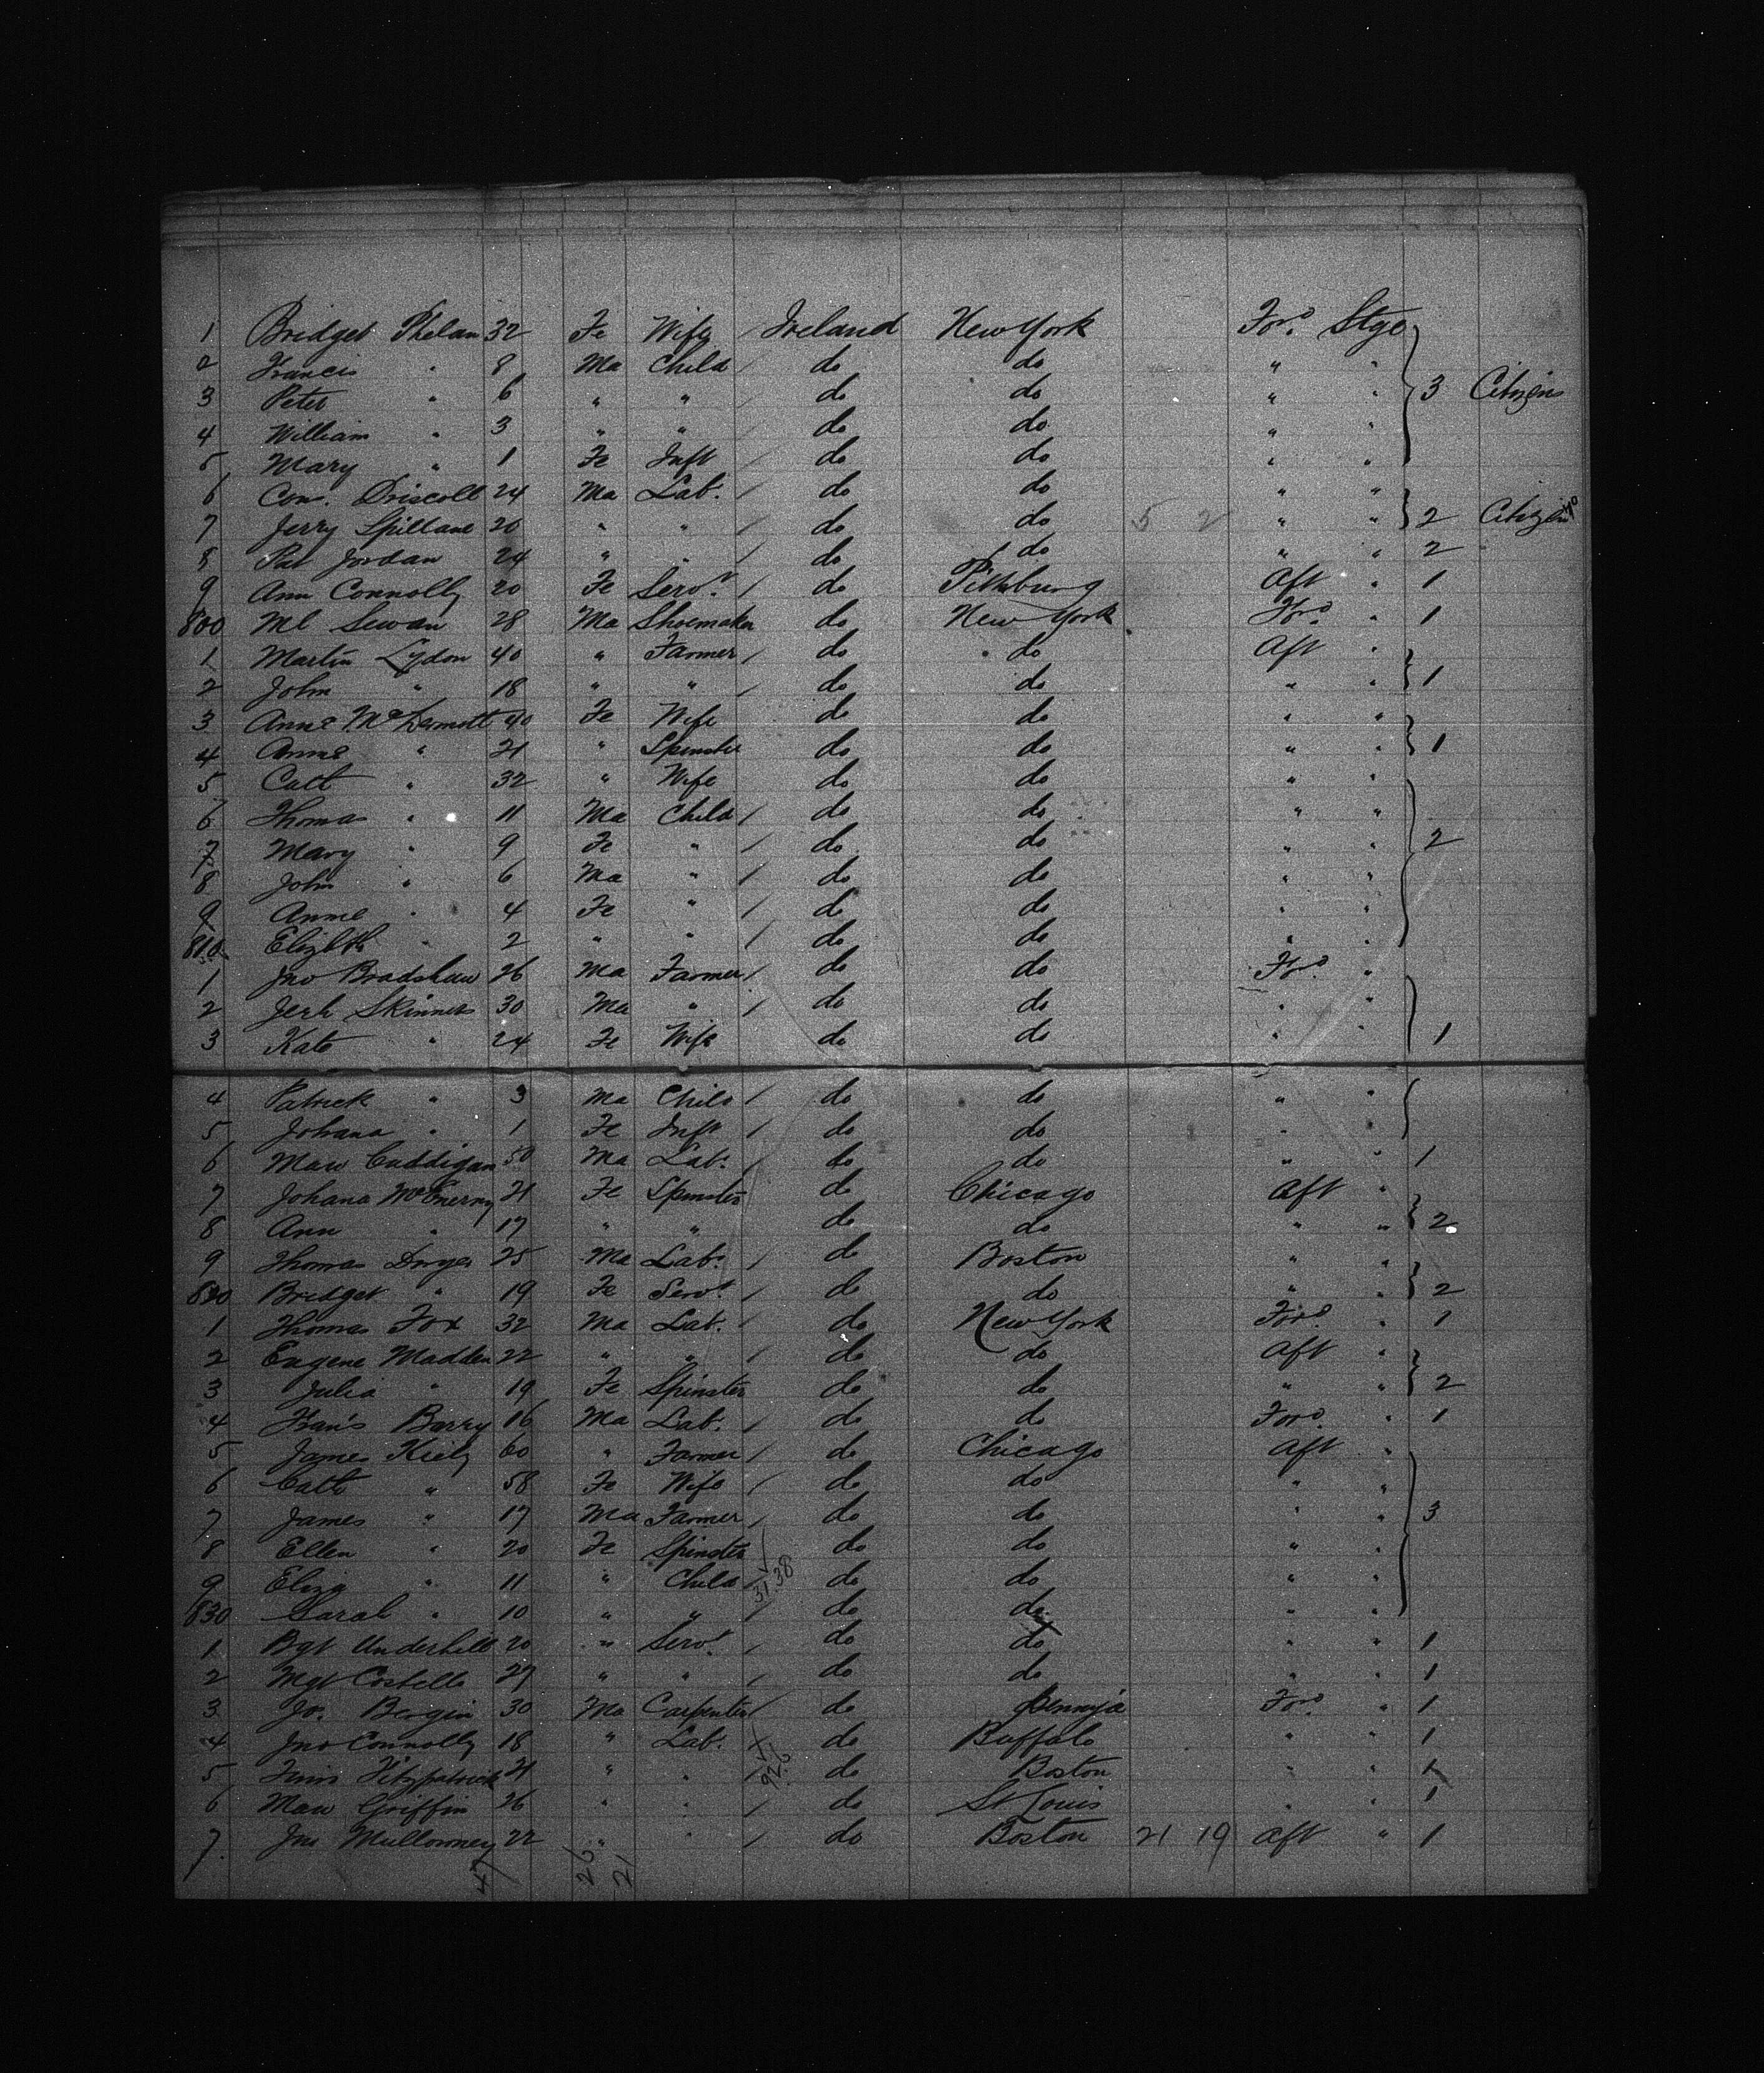 1 Bridget Phelan 32 Fe Wife / Ireland New York For.d Stge
2 Francis " 8 Ma Child / do do " "
3 Peter " 6 " " do do " " 3 Citizens
4 William " 3 " " do do " "
5 Mary " 1 Fe Inft / do do " "
6 Con. Driscoll 24 Ma Lab. / do do " "
7 Jerry Spillane 20 " " / do do 5 2 " " 2 Citizen
8 Pat Jordan 24 " " / do do " " 2
9 Ann Connolly 20 Fe Serv.t / do Pittsburg Aft " 1
800 Ml 28 Ma Shoemaker do New York For.d " 1
1 Martin Lydon 40 " Farmer / do do Aft "
2 John " 18 " " / do do " " 1
3 Anne McDermott 40 Fe Wife do do " "
4 Anne " 21 " Spinster do do " " 1
5 Cath " 32 " Wife do do " "
6 Thomas " 11 Ma Child / do do " "
7 Mary " 9 Fe " / do do " " 2
8 John " 6 Ma " / do do " "
9 Anne " 4 Fe " / do do " "
810 Elizbth " 2 " " / do do " "
1 Jno Bradshaw 26 Ma Farmer / do do For.d "
2 Jerh Skinner 30 Ma " / do do " "
3 Kate " 24 Fe Wife do do " " 1
4 Patrick " 3 Ma Child / do do " "
5 Johana " 1 Fe Inft / do do " "
6 Mau Cuddigan 50 Ma Lab. / do do " " 1
7 Johana McEnerny 21 Fe Spinster do Chicago Aft "
8 Ann " 17 " " do do " " 2
9 Thomas Dwyer 25 Ma Lab. / do Boston " "
820 Bridget " 19 Fe Serv.t / do do " " 2
1 Thomas Fox 32 Ma Lab. / do New York For.d " 1
2 Eugene Madden 22 " " / do do Aft "
3 Julia " 19 Fe Spinster do do " " 2
4 Fran's Barry 16 Ma Lab. / do do For.d " 1
5 James Kiely 60 " Farmer / do Chicago Aft "
6 Cath " 58 Fe Wife / do do " "
7 James " 17 Ma Farmer / do do " " 3
8 Ellen " 20 Fe Spinster do do " "
9 Eliza " 11 " Child / 31 38 do do " "
830 Sarah " 10 " " / do do " "
1 Bgt Underhill 20 " Serv.t / do do " " 1
2 Mgt Costello 27 " " / do do " " 1
3 Jo. Bergin 30 Ma Carpenter / do Pennya For.d " 1
4 Jno Connolly 18 " Lab. / do Buffalo " " 1
5 Fitzpatrick 21 " " / do Boston " " 1
6 Mau Griffin 26 " " / do St Louis " " 1
7 Jno Mullowney 22 " " / do Boston 21 19 Aft " 1
47 26 21